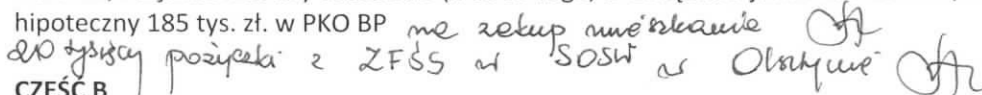 hipoteczny 185 tys. zł. w PKO BP na zakup mieszkania
20 tysięcy pożyczki z ZFŚS w SOSW w Olsztynie
CZĘŚĆ B